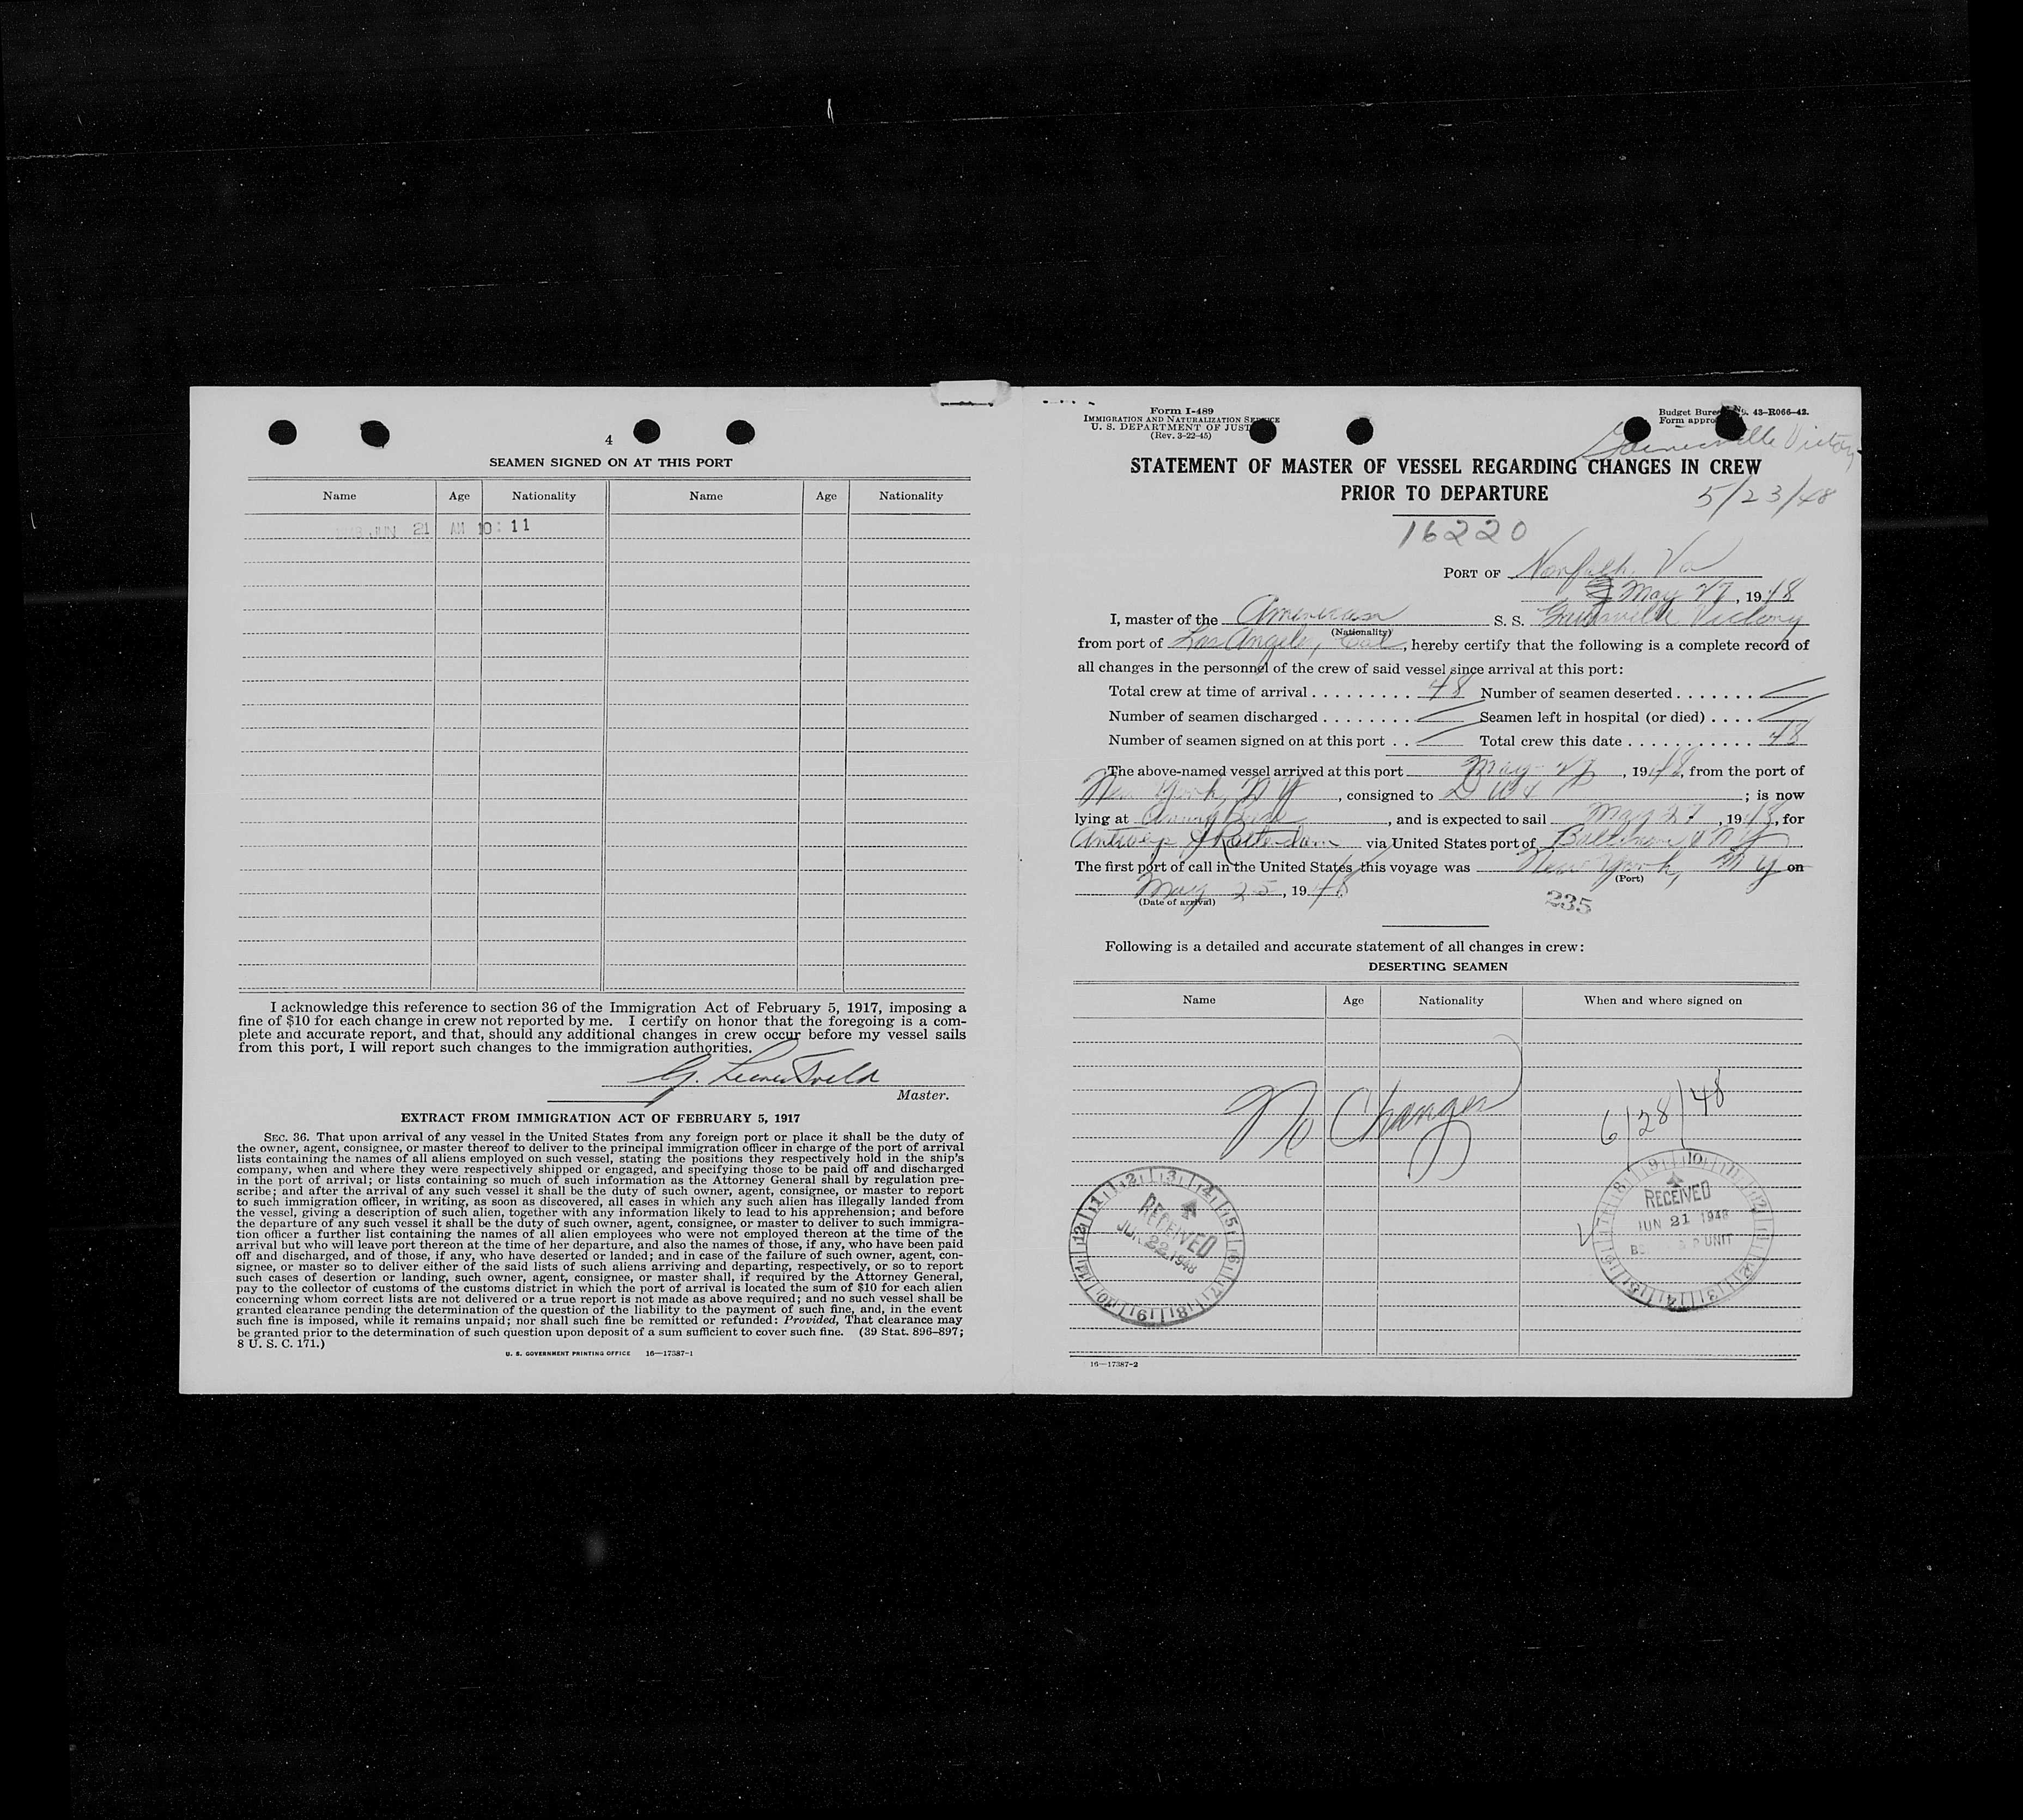 4
SEAMEN SIGNED ON AT THIS PORT
Name Age Nationality Name Age Nationality
JUN 21 AM 10:11
I acknowledge this reference to section 36 of the Immigration Act of February 5, 1917, imposing a
fine of $10 for each change in crew not reported by me. I certify on honor that the foregoing is a com-
plete and accurate report, and that, should any additional changes in crew occur before my vessel sails
from this port, I will report such changes to the immigration authorities.
G.
Master.
EXTRACT FROM IMMIGRATION ACT OF FEBRUARY 5, 1917
SEC. 36. That upon arrival of any vessel in the United States from any foreign port or place it shall be the duty of
the owner, agent, consignee, or master thereof to deliver to the principal immigration officer in charge of the port of arrival
lists containing the names of all aliens employed on such vessel, stating the positions they respectively hold in the ship's
company, when and where they were respectively shipped or engaged, and specifying those to be paid off and discharged
in the port of arrival; or lists containing so much of such information as the Attorney General shall by regulation pre-
scribe; and after the arrival of any such vessel it shall be the duty of such owner, agent, consignee, or master to report
to such immigration officer, in writing, as soon as discovered, all cases in which any such alien has illegally landed from
the vessel, giving a description of such alien, together with any information likely to lead to his apprehension; and before
the departure of any such vessel it shall be the duty of such owner, agent, consignee, or master to deliver to such immigra-
tion officer a further list containing the names of all alien employees who were not employed thereon at the time of the
arrival but who will leave port thereon at the time of her departure, and also the names of those, if any, who have been paid
off and discharged, and of those, if any, who have deserted or landed; and in case of the failure of such owner, agent, con-
signee, or master so to deliver either of the said lists of such aliens arriving and departing, respectively, or so to report
such cases of desertion or landing, such owner, agent, consignee, or master shall, if required by the Attorney General,
pay to the collector of customs of the customs district in which the port of arrival is located the sum of $10 for each alien
concerning whom correct lists are not delivered or a true report is not made as above required; and no such vessel shall be
granted clearance pending the determination of the question of the liability to the payment of such fine, and, in the event
such fine is imposed, while it remains unpaid; nor shall such fine be remitted or refunded: Provided, That clearance may
be granted prior to the determination of such question upon deposit of a sum sufficient to cover such fine. (39 Stat. 896-897;
8 U. S. C. 171.)
U. S. GOVERNMENT PRINTING OFFICE 16—17387-1
Form I-489
IMMIGRATION AND NATURALIZATION SERVICE
U. S. DEPARTMENT OF JUST
(Rev. 3-22-45)
Budget Bureau No. 43-R066-42.
Form appro
Gainesville Victory
STATEMENT OF MASTER OF VESSEL REGARDING CHANGES IN CREW
PRIOR TO DEPARTURE
5/23/48
16220
PORT OF Norfolk, Va
May 27, 1948
I, master of the American S. S. Gainesville Victory
(Nationality)
from port of Los Angeles, Cal, hereby certify that the following is a complete record of
all changes in the personnel of the crew of said vessel since arrival at this port:
Total crew at time of arrival 48 Number of seamen deserted
Number of seamen discharged Seamen left in hospital (or died)
Number of seamen signed on at this port Total crew this date 48
The above-named vessel arrived at this port May 27, 1948, from the port of
New York, N Y, consigned to ; is now
lying at Army Base, and is expected to sail May 27, 1948, for
Antwerp & Rotterdam via United States port of Baltimore & N Y
The first port of call in the United States this voyage was New York, N Y on
(Port)
May 25, 1948
(Date of arrival)
235
Following is a detailed and accurate statement of all changes in crew:
DESERTING SEAMEN
Name Age Nationality When and where signed on
No Changes
6/28/48
RECEIVED
JUN 22 1948
RECEIVED
JUN 21 1948
UNIT
16—17387-2